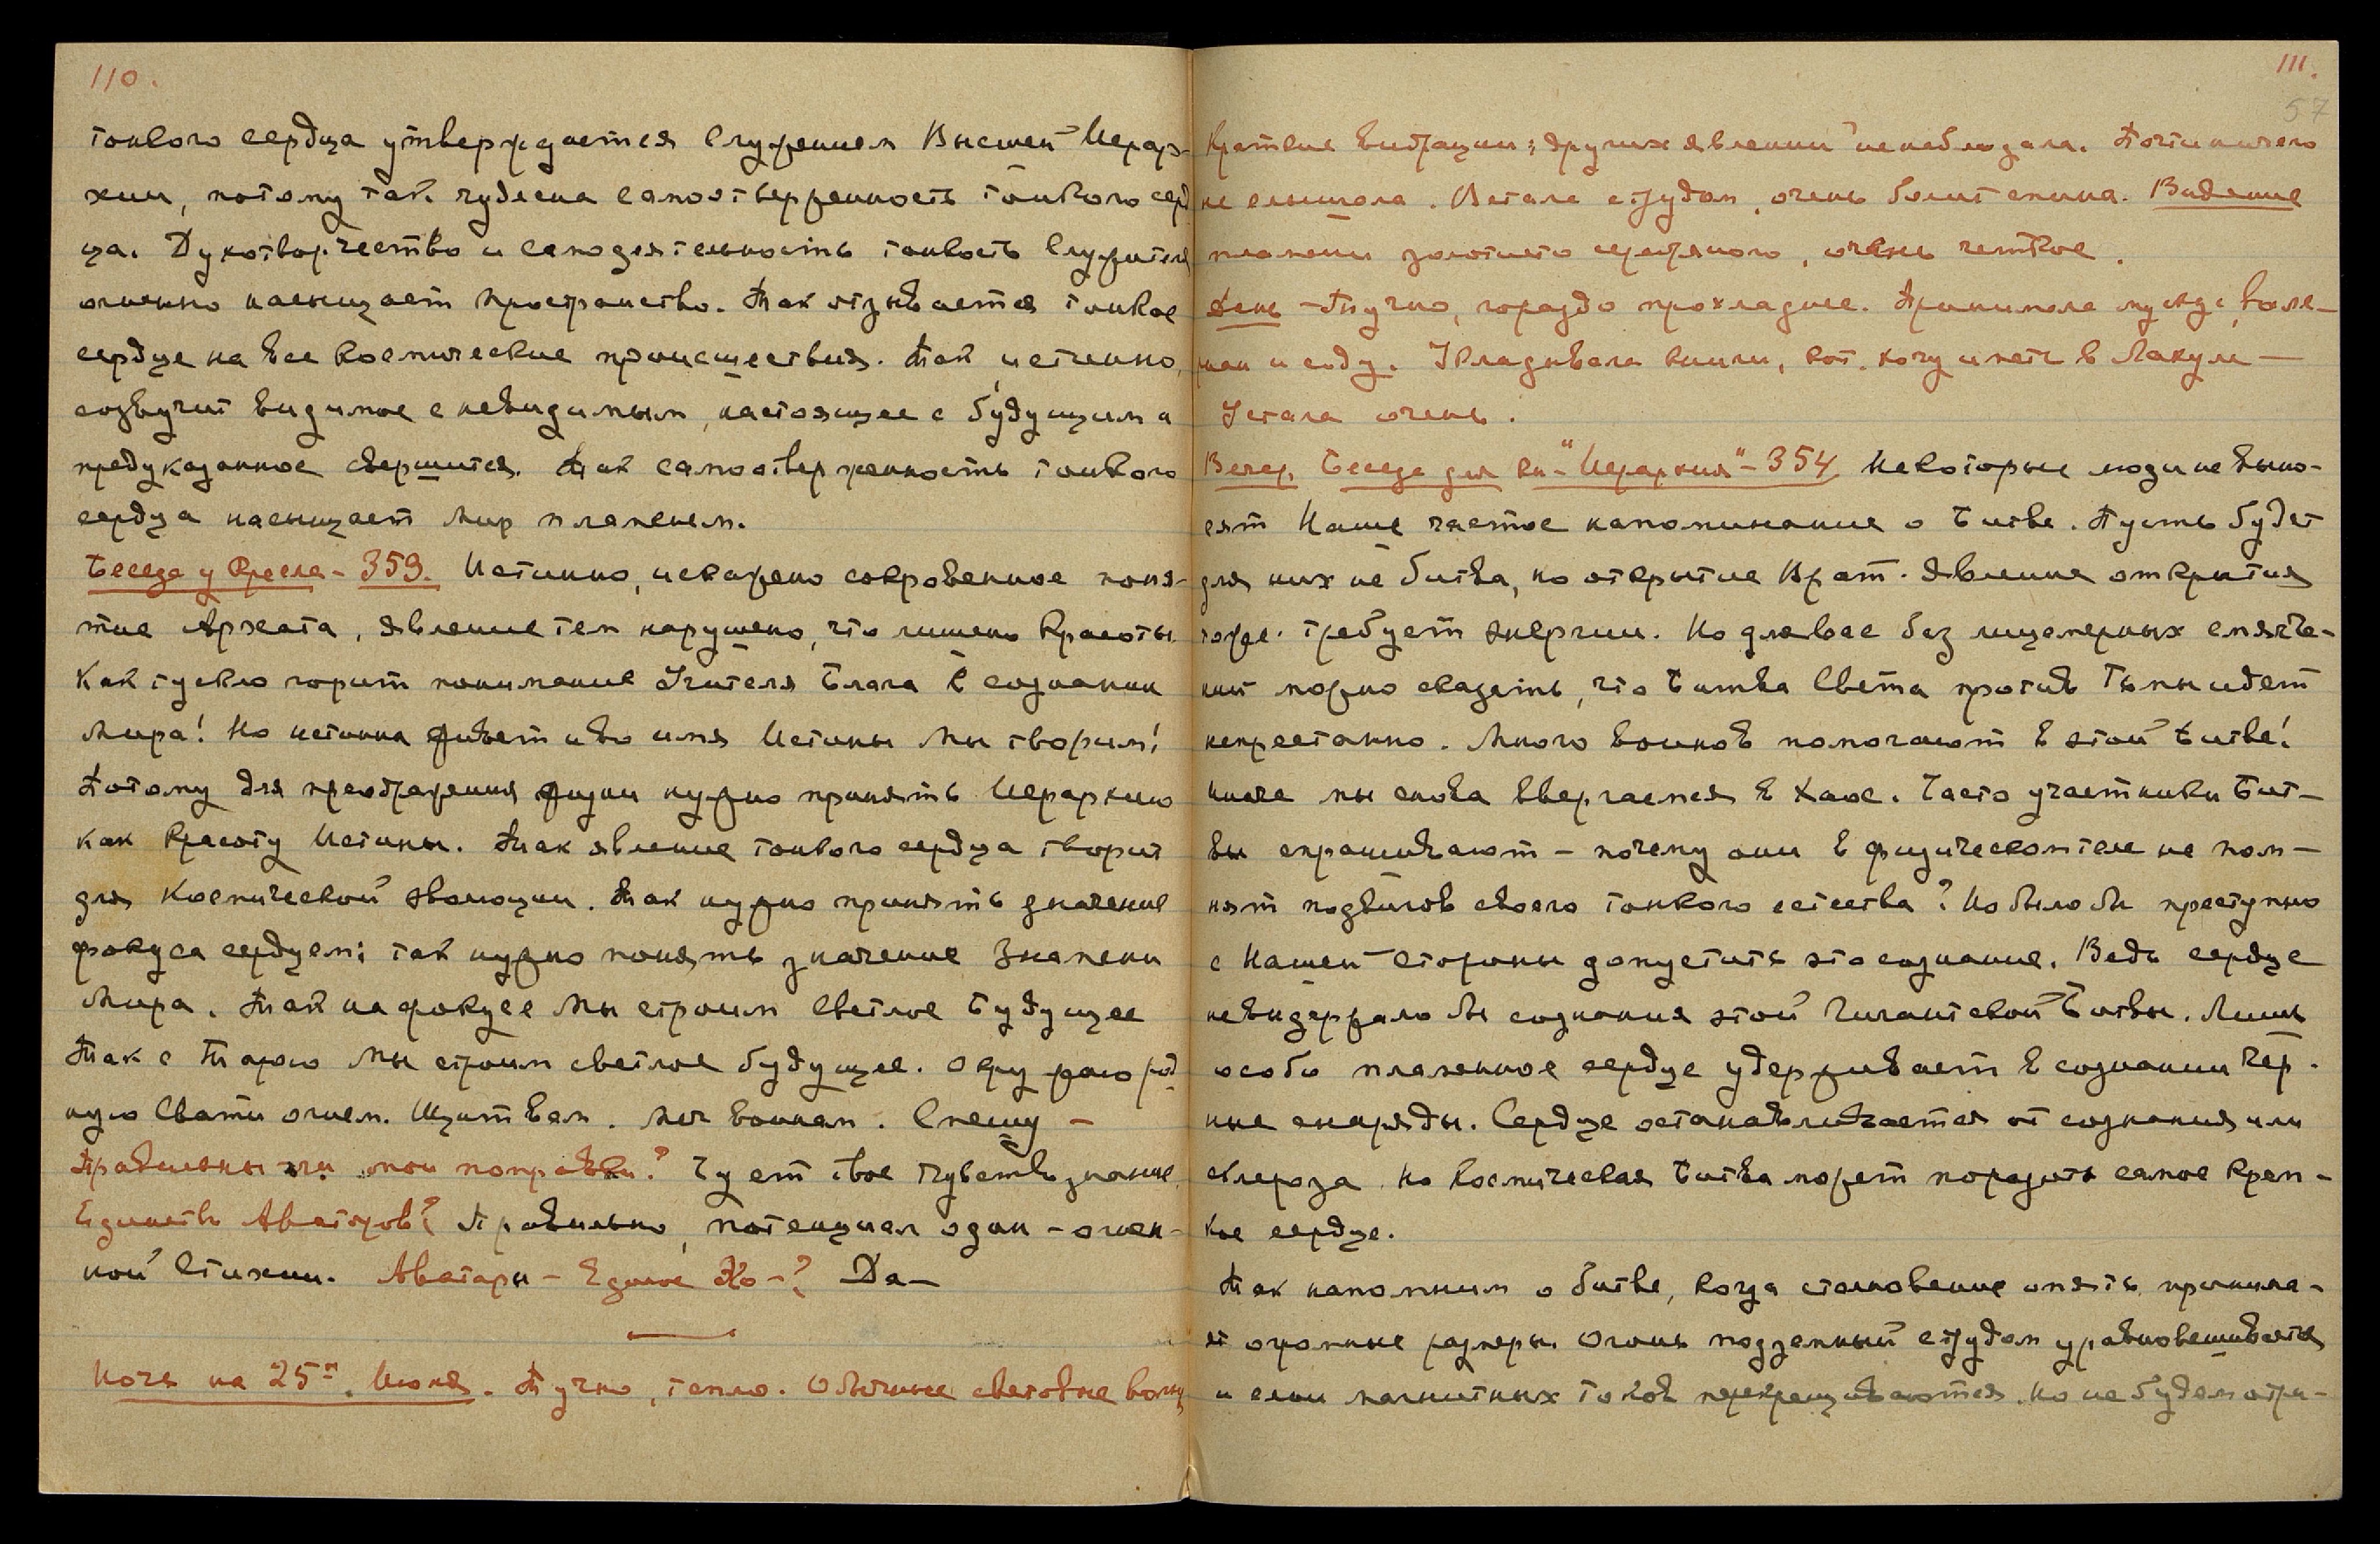 110.
тонкого сердца утверждается Служением Высшей Иерар-
хии, потому так чудесна самоотверженность тонкого серд
ца. Духотворчество и самодеятельность тонкость Служителя
огненно насыщает пространство. Так отзывается тонкое
сердце на все космические происшествия. Так истинно,
созвучит видимое с невидимым, настоящее с будущим и
предуказанное свершится. Так самоотверженность тонкого
сердца насыщает Мир пламенем.
Беседа у Кресла - 359. Истинно, искажено сокровенное поня-
тие Архата, явление тем нарушено, что лишено Красоты.
Как тускло горит понимание Учителя Блага в сознании
Мира! Но истина живет и во имя Истины Мы творим!
Потому для преображения жизни нужно принять Иерархию
как Красоту Истины. Так явление тонкого сердца творит
для Космической эволюции. Так нужно принять значение
фокуса сердцем; так нужно понять значение Знамени
Мира. Так на фокусе Мы строим Светлое Будущее
Так с Тарою Мы строим светлое будущее.
ную Свати огнем. Щит вам. Меч воинам. Спешу -
Правильны ли мои поправки? Чует твое чувствознание.
Единств Аватаров? Правильно, потенциал один - огнен-
ной Стихии. Аватары - Единое Эго -? Да -
Ночь на 25ое Июня. Тучно, тепло. Обычные световые волны,
111.
57
Краткие вибрации; других явлений не наблюдала. Почти ничего
не слышала. Встала с трудом, очень болит спина. Видение
пламени золотисто серебряного, очень четкое.
День - Тучно, гораздо прохладнее. Принимала мускус, валє-
риан и соду. Укладывала книги, кот. хочу иметь в Лахуле -
Устала очень.
Вечер. Беседа для кн - "Иерархия" - 354 Некоторые люди не выно-
сят Наше частое напоминание о Битве. Пусть будет
для них не битва, но открытие Врат. Явление открытия
тоже требует энергии. Но для вас без лицемерных смягче-
ний можно сказать, что Битва Света против Тьмы идет
непрестанно. Много воинов помогают в этой Битве!
иначе мы снова ввергаемся в Хаос. Часто участники Бит-
вы спрашивают - почему они в физическом теле не пом-
нят подвигов своего тонкого естества? Но было бы преступно
с Нашей Стороны допустить это сознание. Ведь сердце
не выдержало бы сознания этой Гигантской Битвы. Лишь
особо пламенное сердце удерживает в сознании Чер-
ные снаряды. Сердце останавливается от сознания или
склероза. Но Космическая Битва может поразить самое креп-
кое сердце.
Так напомним о битве, когда столкновение опять принима-
ет огромные размеры. Огонь подземный с трудом уравновешивается
и слои магнитных токов перекрещиваются. Но не будем отри-